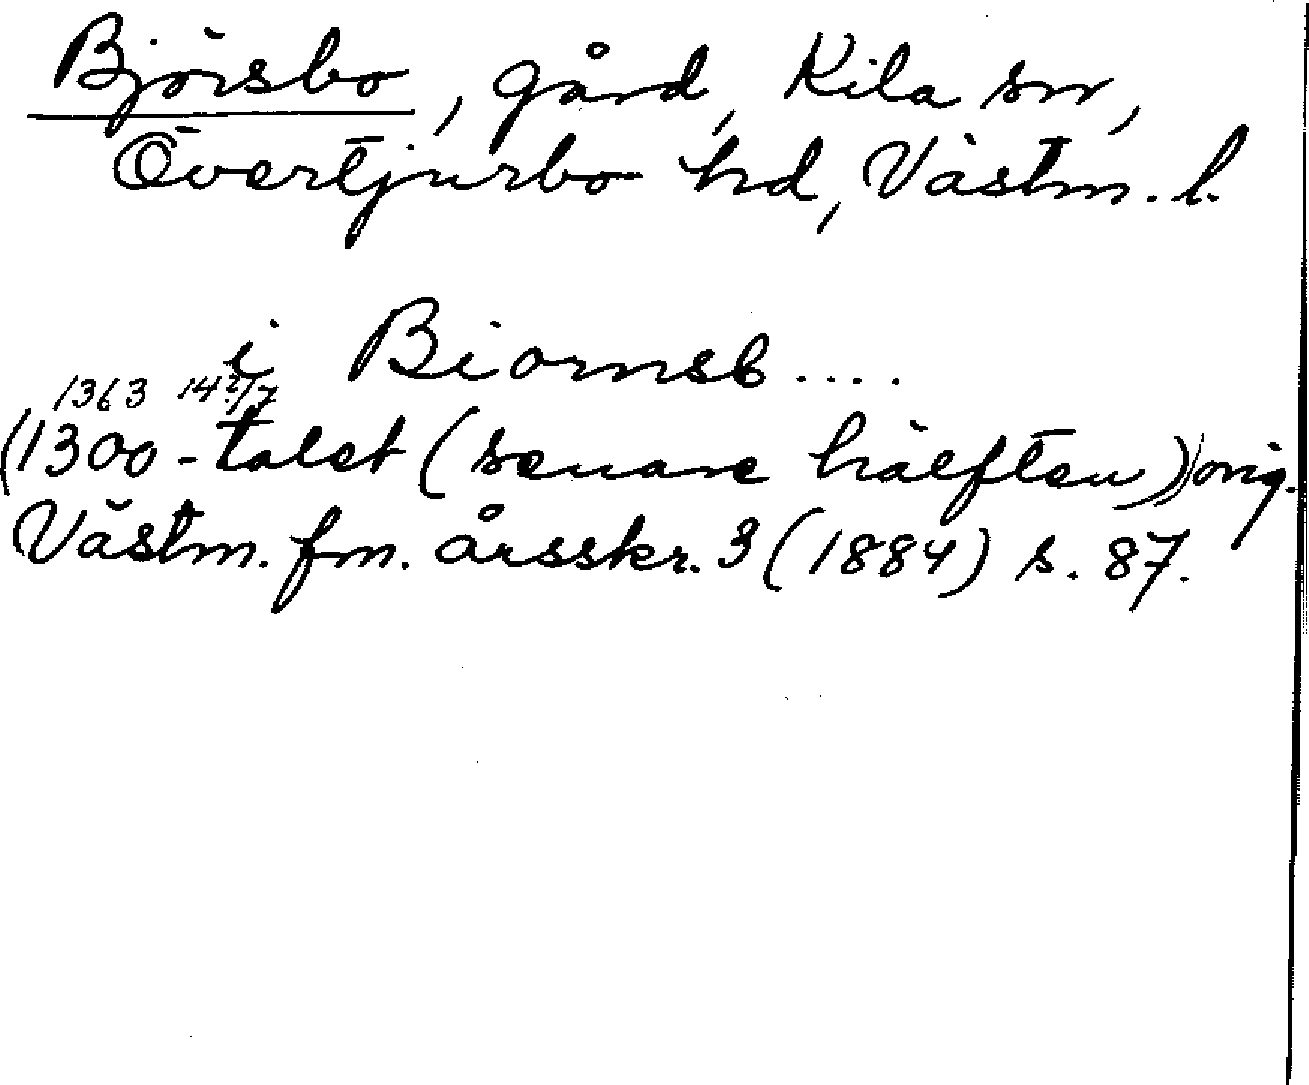 Björsbo, gård, Kila sn,
Övertjurbo hd, Västm. l.
i Biornsb ....
1363 14 2/7
(1300-talet (senare hälften)) orig.
Västm. fm. årsskr. 3 (1884) s. 87.